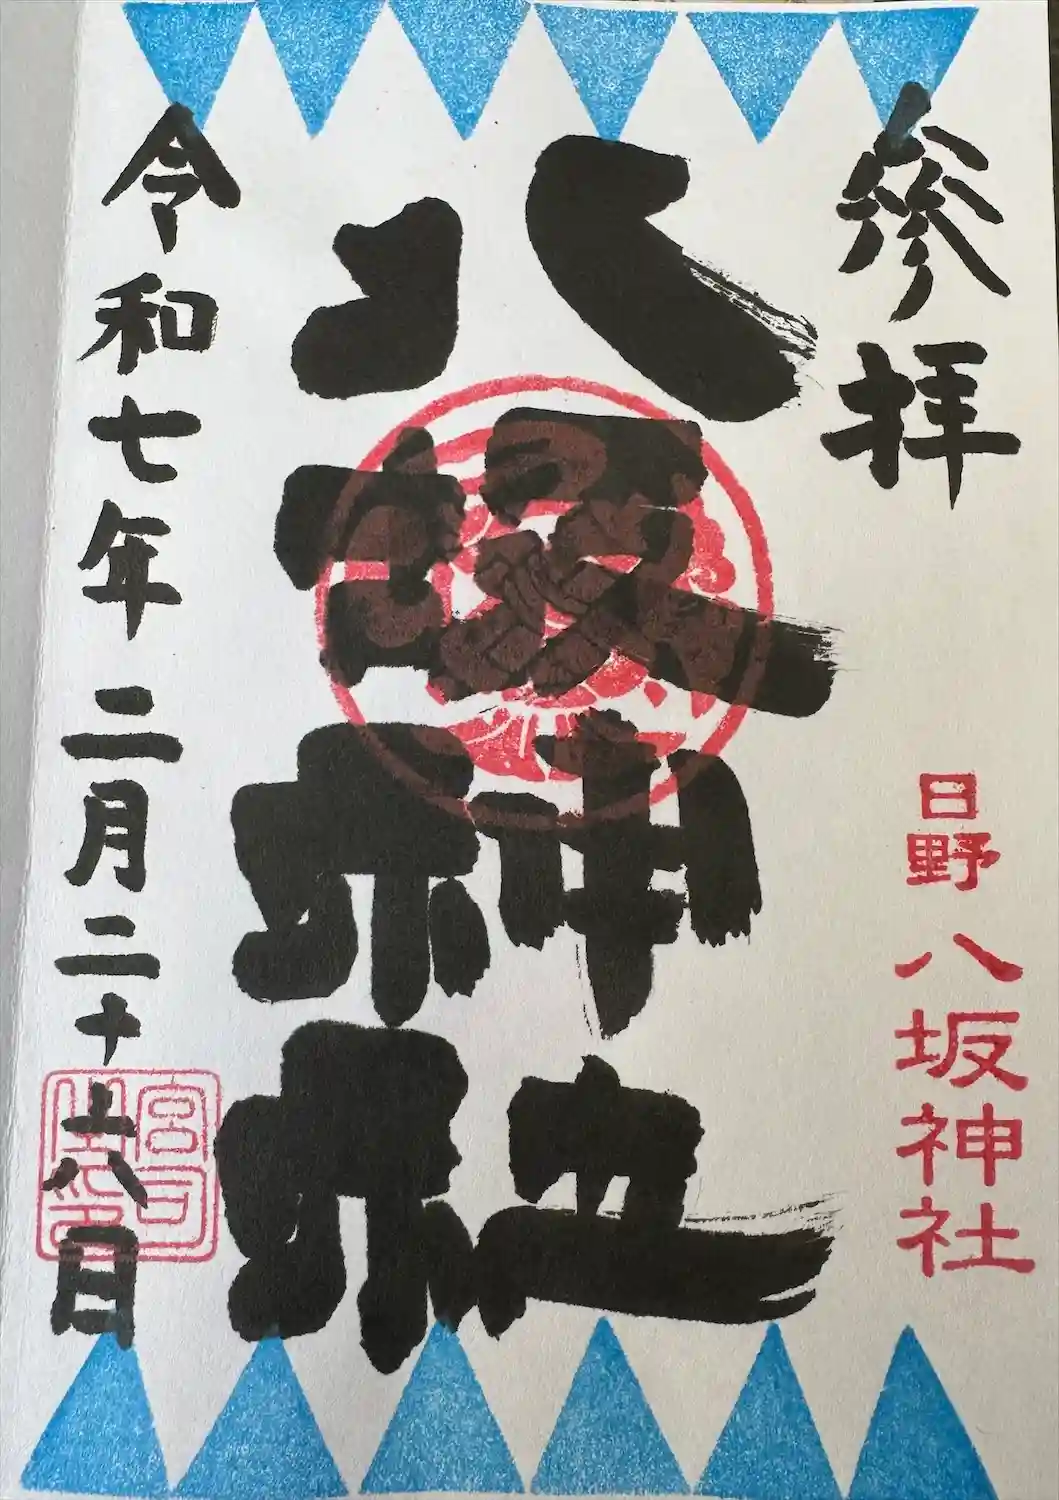 参拝
日野八坂神社
八坂神社
令和七年二月二十六日
宮司之印